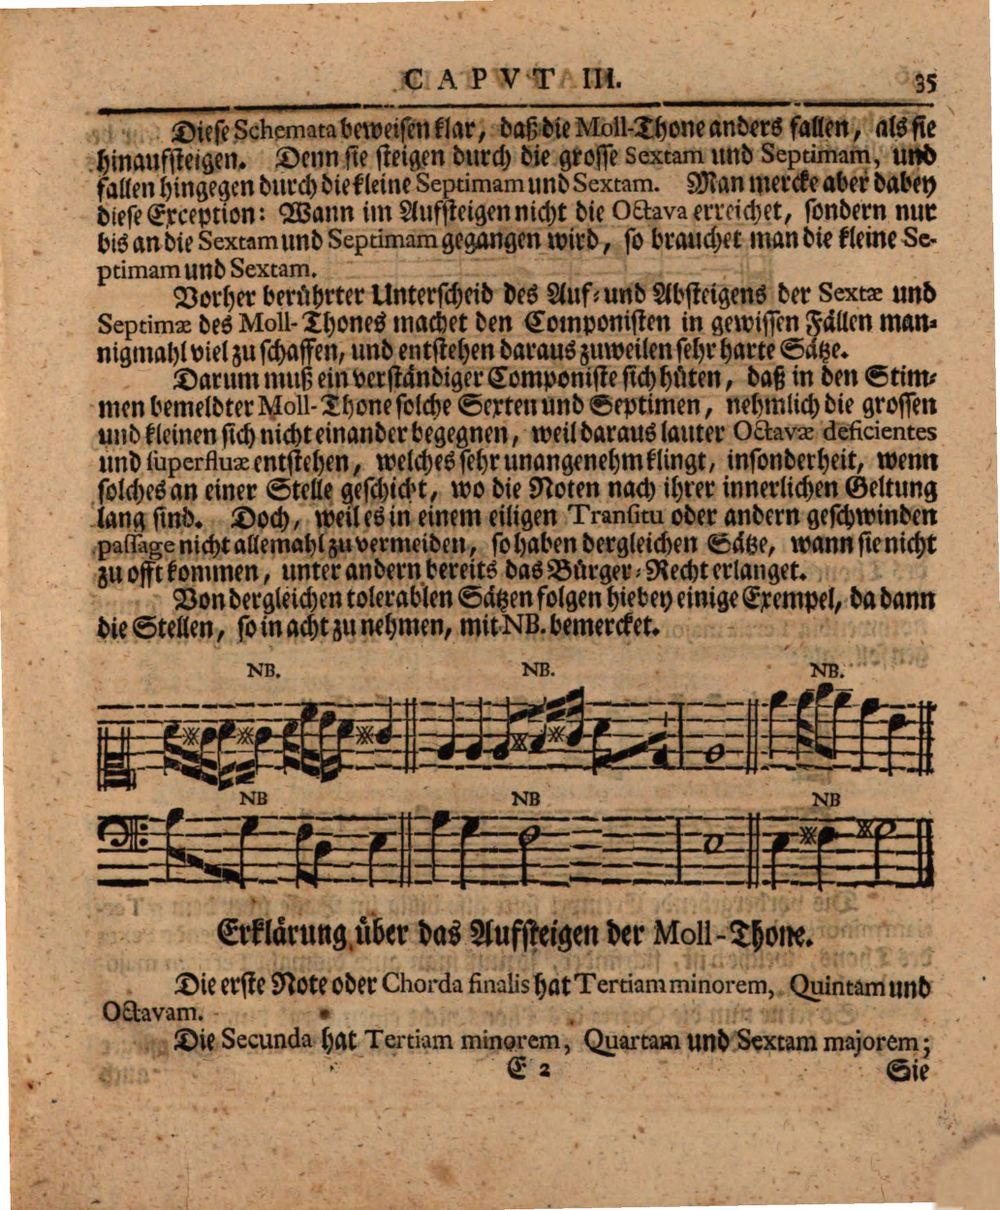 CAPVT III. 35
Diese Schemata beweisen klar, daß die Moll-Thone anders fallen, als sie
hinaufsteigen. Denn sie steigen durch die grosse Sextam und Septimam, und
fallen hingegen durch die kleine Septimam und Sextam. Man mercke aber dabey
diese Exception: Wann im Aufsteigen nicht die Octava erreichet, sondern nur
bis an die Sextam und Septimam gegangen wird, so brauchet man die kleine Se-
ptimam und Sextam.
Vorher berührter Unterscheid des Auf- und Absteigens der Sextæ und
Septimæ des Moll-Thones machet den Componisten in gewissen Fällen man-
nigmahl viel zu schaffen, und entstehen daraus zuweilen sehr harte Sätze.
Darum muß ein verständiger Componiste sich hüten, daß in den Stim-
men bemeldter Moll-Thone solche Sexten und Septimen, nehmlich die grossen
und kleinen sich nicht einander begegnen, weil daraus lauter Octavæ deficientes
und superfluæ entstehen, welches sehr unangenehm klingt, insonderheit, wenn
solches an einer Stelle geschicht, wo die Noten nach ihrer innerlichen Geltung
lang sind. Doch, weil es in einem eiligen Transitu oder andern geschwinden
passage nicht allemahl zu vermeiden, so haben dergleichen Sätze, wann sie nicht
zu offt kommen, unter andern bereits das Bürger-Recht erlanget.
Von dergleichen tolerablen Sätzen folgen hiebey einige Exempel, da dann
die Stellen, so in acht zu nehmen, mit NB. bemercket.
NB. NB. NB.
NB NB NB
Erklärung über das Aufsteigen der Moll-Thone.
Die erste Note oder Chorda finalis hat Tertiam minorem, Quintam und
Octavam.
Die Secunda hat Tertiam minorem, Quartam und Sextam majorem;
E 2 Sie